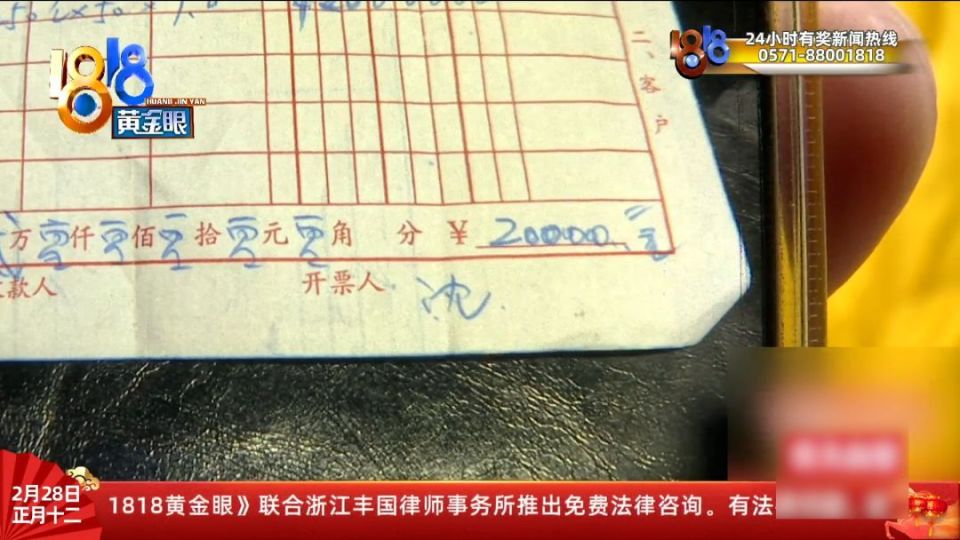 1818
HUANG JIN YAN
黄金眼
1818
24小时有奖新闻热线
0571-88001818
二、客户
万零仟零佰零拾零元零角 分 ¥ 20000元
款人
开票人 沈
2月28日
正月十二
1818黄金眼》联合浙江丰国律师事务所推出免费法律咨询。有法